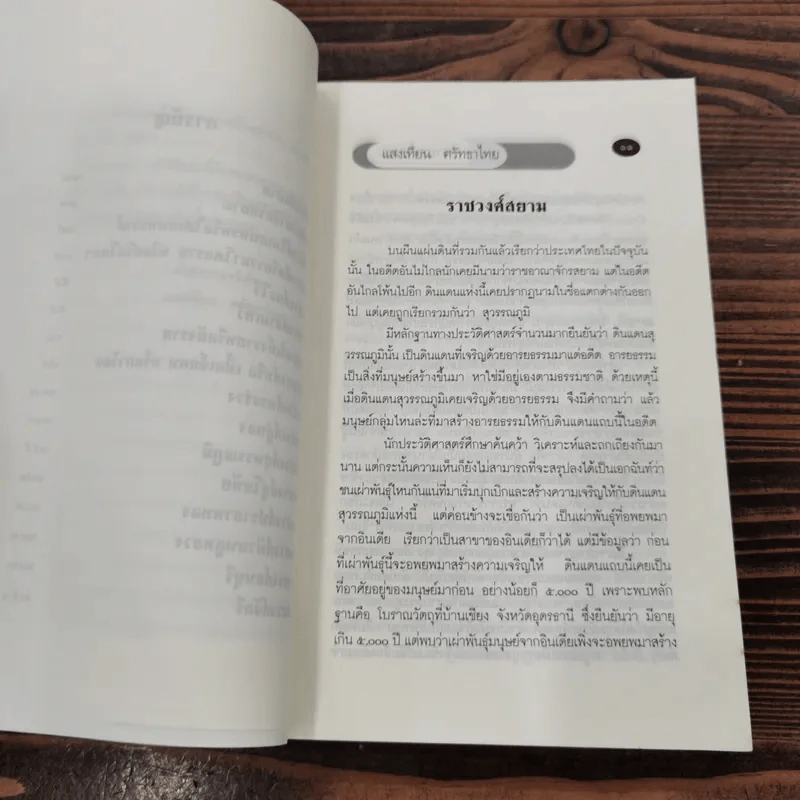 แสงเทียน ศรัทธาไทย
๑๑
ราชวงศ์สยาม
บนผืนแผ่นดินที่รวมกันแล้วเรียกว่าประเทศไทยในปัจจุบัน
นั้น ในอดีตอันไม่ไกลนักเคยมีนามว่าราชอาณาจักรสยาม แต่ในอดีต
อันไกลโพ้นไปอีก ดินแดนแห่งนี้เคยปรากฏนามในชื่อแตกต่างกันออก
ไป แต่เคยถูกเรียกรวมกันว่า สุวรรณภูมิ
มีหลักฐานทางประวัติศาสตร์จำนวนมากยืนยันว่า ดินแดนสุ
วรรณภูมินั้น เป็นดินแดนที่เจริญด้วยอารยธรรมมาแต่อดีต อารยธรรม
เป็นสิ่งที่มนุษย์สร้างขึ้นมา หาใช่มีอยู่เองตามธรรมชาติ ด้วยเหตุนี้
เมื่อดินแดนสุวรรณภูมิเคยเจริญด้วยอารยธรรม จึงมีคำถามว่า แล้ว
มนุษย์กลุ่มไหนล่ะที่มาสร้างอารยธรรมให้กับดินแดนแถบนี้ในอดีต
นักประวัติศาสตร์ศึกษาค้นคว้า วิเคราะห์และถกเถียงกันมา
นาน แต่กระนั้นความเห็นก็ยังไม่สามารถที่จะสรุปลงได้เป็นเอกฉันท์ว่า
ชนเผ่าพันธุ์ไหนกันแน่ที่มาเริ่มบุกเบิกและสร้างความเจริญให้กับดินแดน
สุวรรณภูมิแห่งนี้ แต่ค่อนข้างจะเชื่อกันว่า เป็นเผ่าพันธุ์ที่อพยพมา
จากอินเดีย เรียกว่าเป็นสาขาของอินเดียก็ว่าได้ แต่มีข้อมูลว่า ก่อน
ที่เผ่าพันธุ์นี้จะอพยพมาสร้างความเจริญให้ ดินแดนแถบนี้เคยเป็น
ที่อาศัยอยู่ของมนุษย์มาก่อน อย่างน้อยก็ ๕,๐๐๐ ปี เพราะพบหลัก
ฐานคือ โบราณวัตถุที่บ้านเชียง จังหวัดอุดรธานี ซึ่งยืนยันว่า มีอายุ
เกิน ๕,๐๐๐ ปี แต่พบว่าเผ่าพันธุ์มนุษย์จากอินเดียเพิ่งจะอพยพมาสร้าง